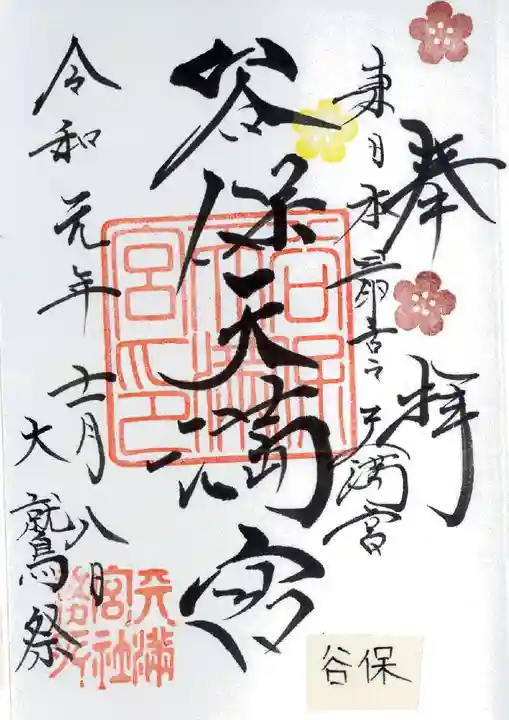 奉拝
東日本最古之天満宮
谷保天満宮
谷保天満宮印
令和元年十一月八日
大鷲祭
天満宮社務所
谷保